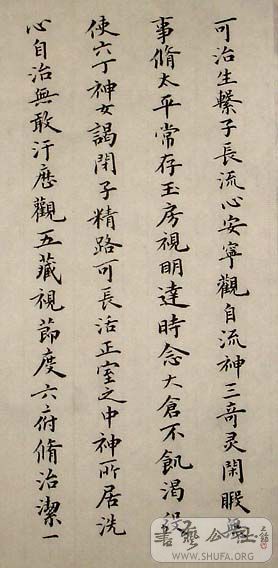 可治生繫子長流心安寧觀自流神三奇灵閑暇無
事脩太平常存玉房視明達時念大倉不飢渴役
使六丁神女謁閉子精路可長活正室之中神所居洗
心自治無敢汙歷觀五藏視節度六府脩治潔一
WWW.SHUFA.ORG